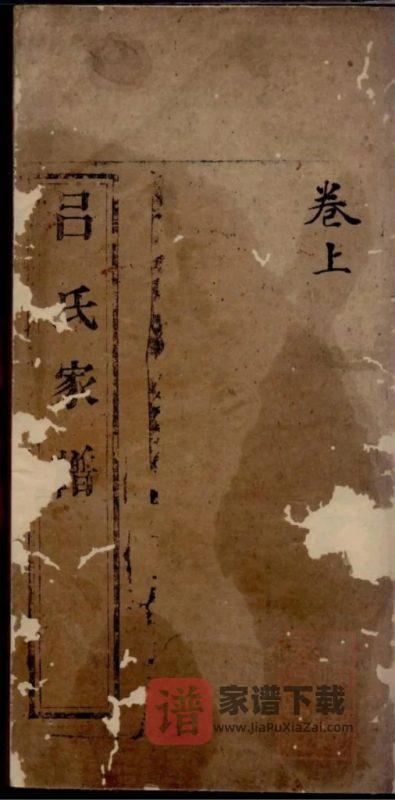 卷上
吕氏家譜
谱 家谱下载
www.JiaPuXiaZai.com